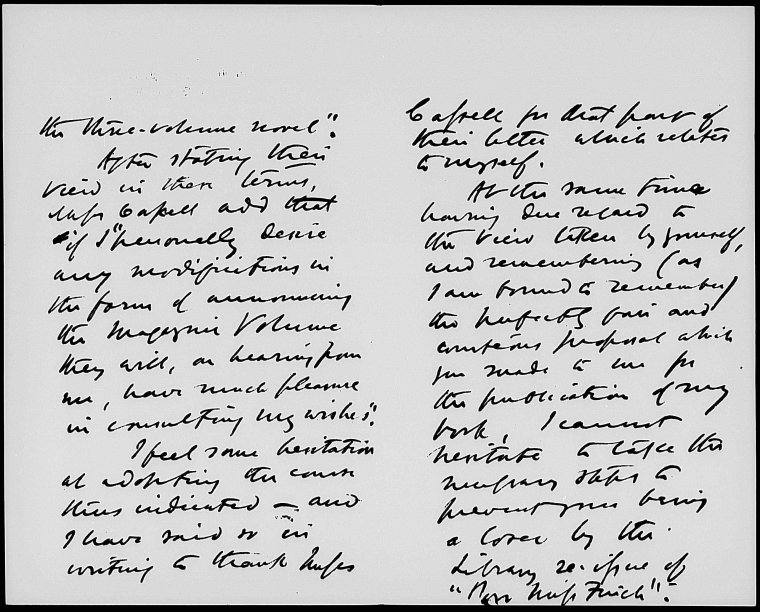 the three-volume novel".
After stating their
view in these terms,
Messrs Cassell add that
"if I "personally desire
any modifications in
the form of announcing
the Magazine Volume
they will, on hearing from
me, have much pleasure
in consulting my wishes".
I feel some hesitation
at adopting the course
thus indicated — and
I have said so in
writing to thank Messrs
Cassell for that part of
their letter which relates
to myself.
At the same time
having due regard to
the view taken by yourself,
and remembering (as
I am bound to remember)
the perfectly fair and
courteous proposal which
you made to me for
the publication of my
book, I cannot
hesitate to take the
necessary steps to
prevent your being
a loser by the
Library re-issue of
"Poor Miss Finch".